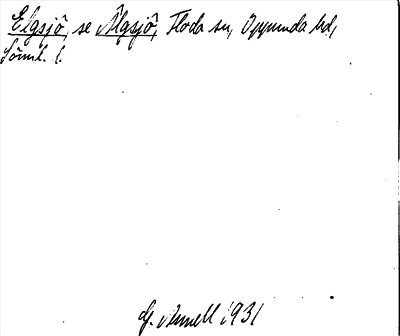 Elgsjö, se Älgsjö, Floda sn, Oppunda hd,
Söml. l.
G. Annell 1931